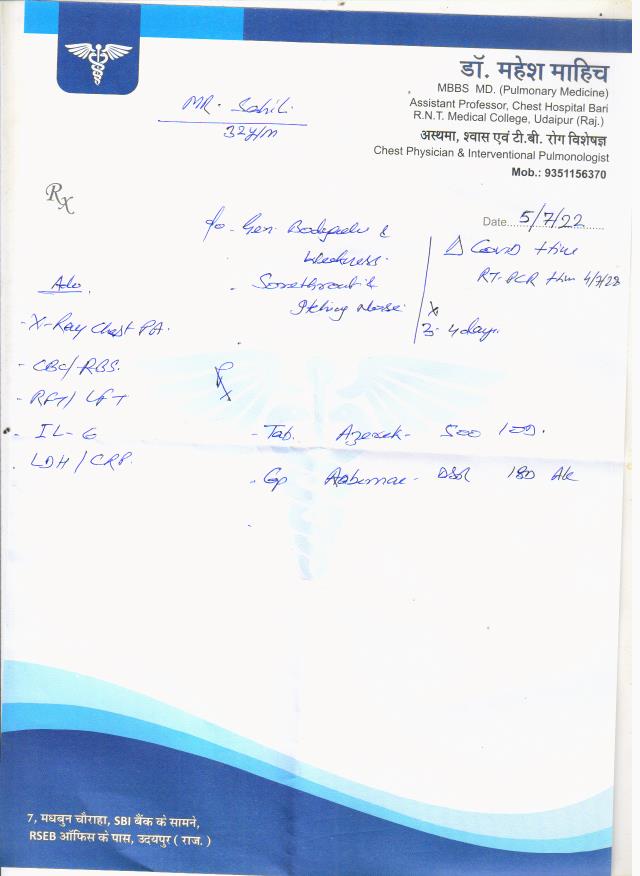 डॉ. महेश माहिच
MBBS MD. (Pulmonary Medicine)
Assistant Professor, Chest Hospital Bari
R.N.T. Medical College, Udaipur (Raj.)
अस्थमा, श्वास एवं टी.बी. रोग विशेषज्ञ
Chest Physician & Interventional Pulmonologist
Mob.: 9351156370
MR. Sahil
32y/m
Rx
Date 5/7/22
c/o - Gen. Bodyache &
Weakness.
- Sorethroat &
Itching Nose.
x
3-4 days.
Δ Covid +ive
RT-PCR +ive 4/7/22
Adv.
- X-Ray Chest PA.
- CBC/RBS.
- RFT/LFT
- IL-6
- LDH/CRP.
Rx
- Tab. 500 1OD.
- Cap DSR 1BD
7, मधबुन चौराहा, SBI बैंक के सामने,
RSEB ऑफिस के पास, उदयपुर ( राज. )